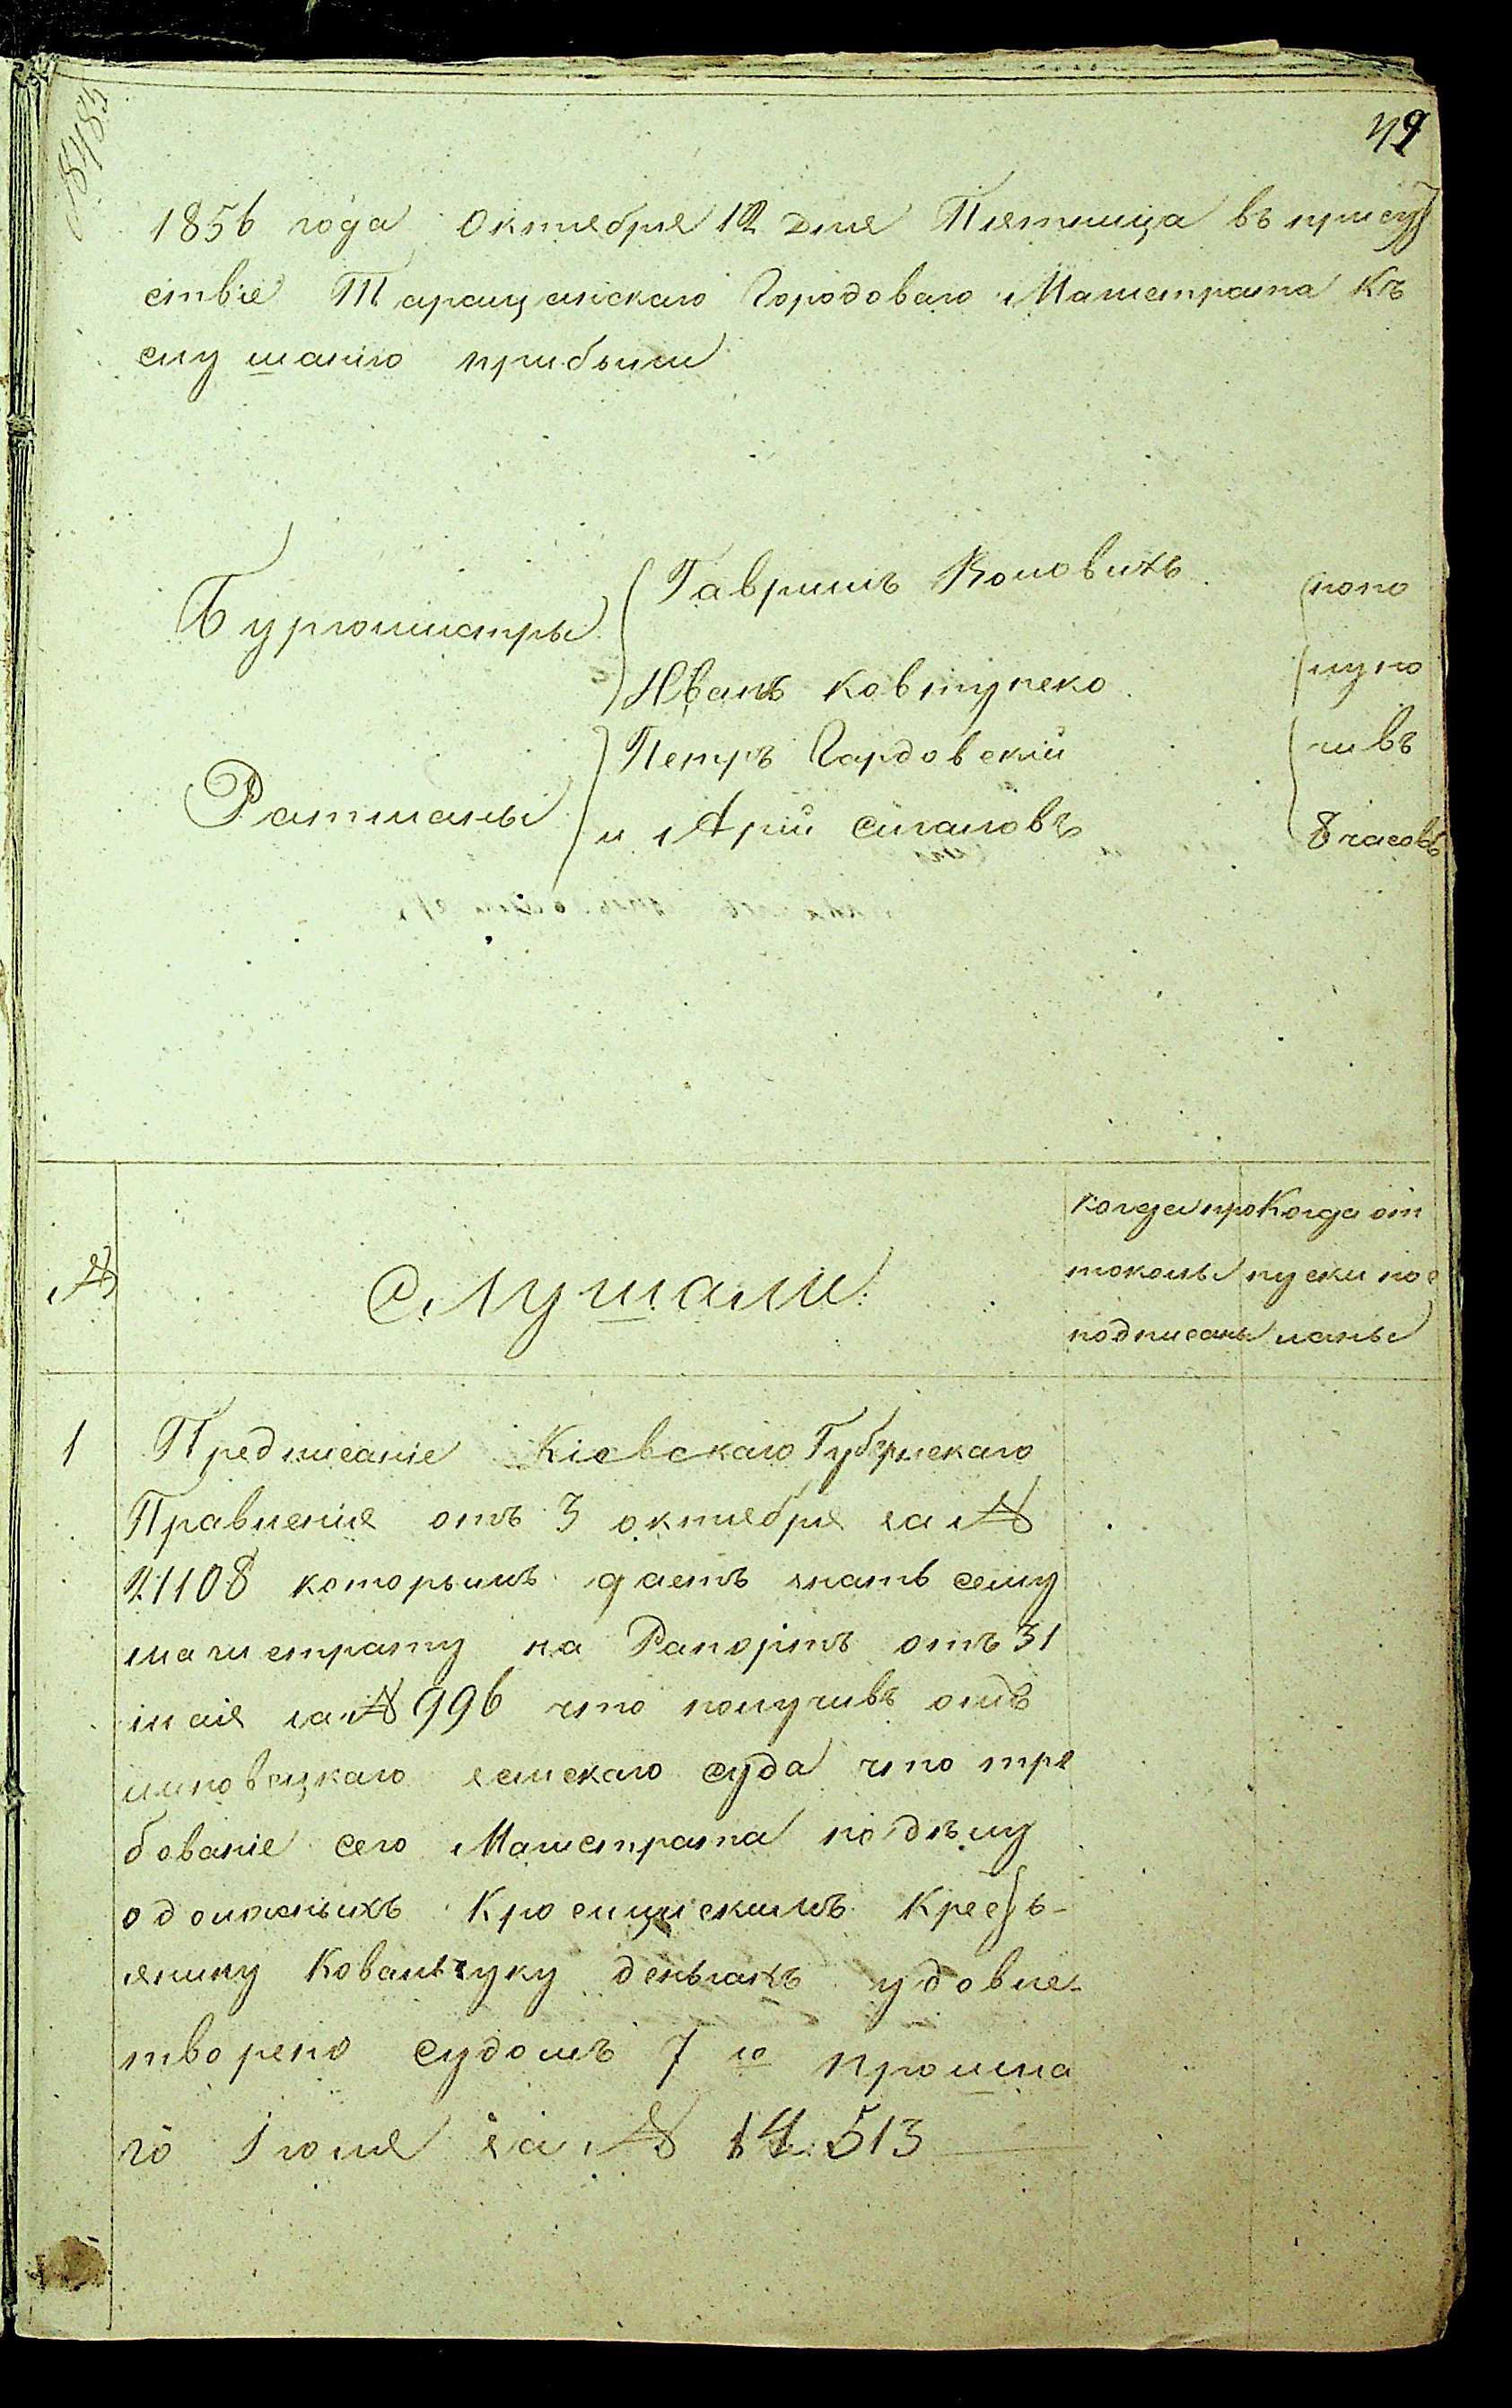 49
1856 года Октября 12 дня Пятница въ присут
ствіе Таращанскаго Городоваго Магистрата Къ
слушанію прибыли
Бургомистры
Гаврилъ Воловикъ
Иванъ Ковтуненко
Ратманы
Петръ Гардовскій
и Арій Сигаловъ
попо
луно
чивъ
8 часовъ
№
Слушали
Когда про
токолы
подписаны
Когда от
пуски пос
ланы
1
Предписаніе Кіевскаго Губернскаго
Правленія отъ 3 октября за №
21108 которымъ даетъ знать сему
магистрату на Рапортъ отъ 31
мая за № 996 что получивъ отъ
земскаго суда что тре
бованіе сего Магистрата по дѣлу
одолженныхъ Кресть-
янину Ковальчуку деньгахъ удовле-
творено судомъ 7 го прошла
го Іюля за № 14.513